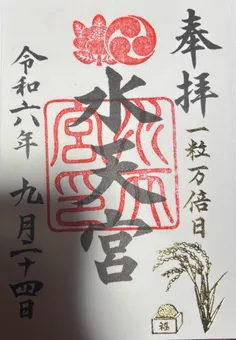 奉拝
一粒万倍日
水天宮
令和六年
九月二十四日
福